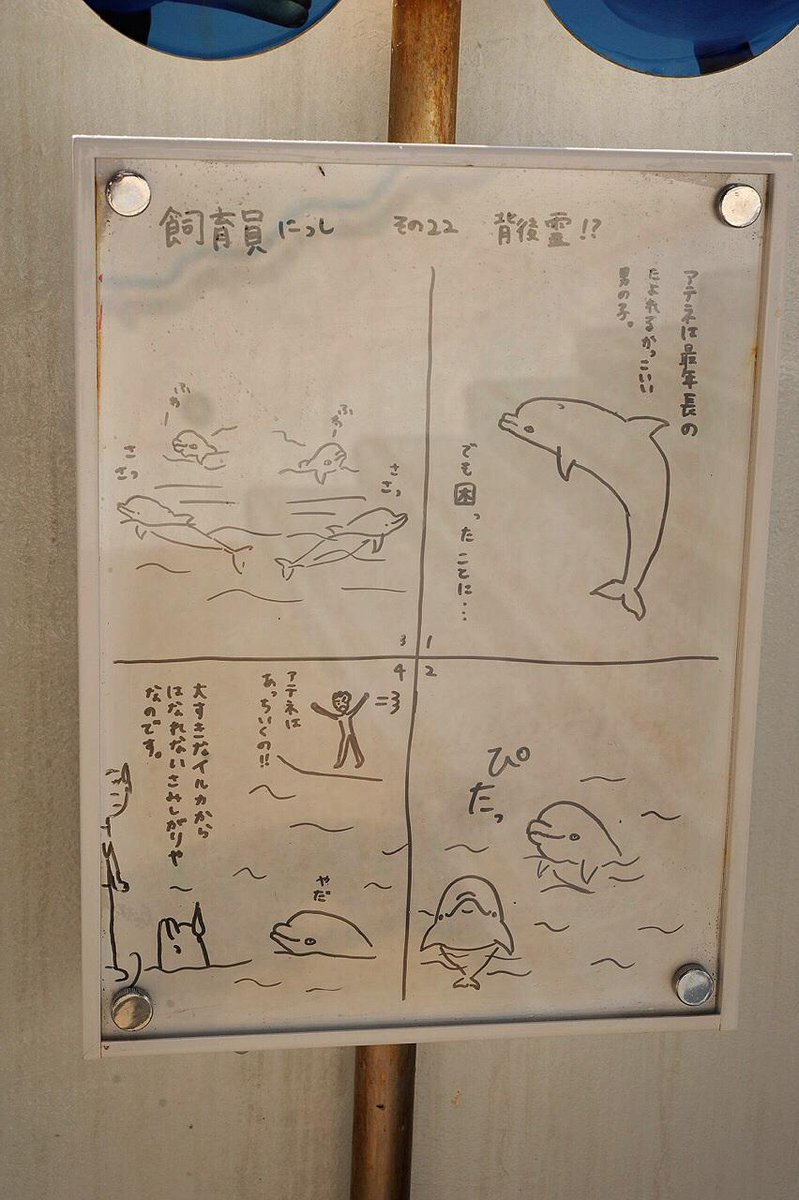 飼育員にっし その22 背後霊!?
アテネは最年長の
たよれるかっこいい
男の子。
でも困ったことに…
1
2
ぴたっ
3
ふわー
ふわー
ささっ
ささっ
4
=3
アテネは
あっちいくの!!
やだ
大すきなイルカから
はなれないさみしがりや
なのです。